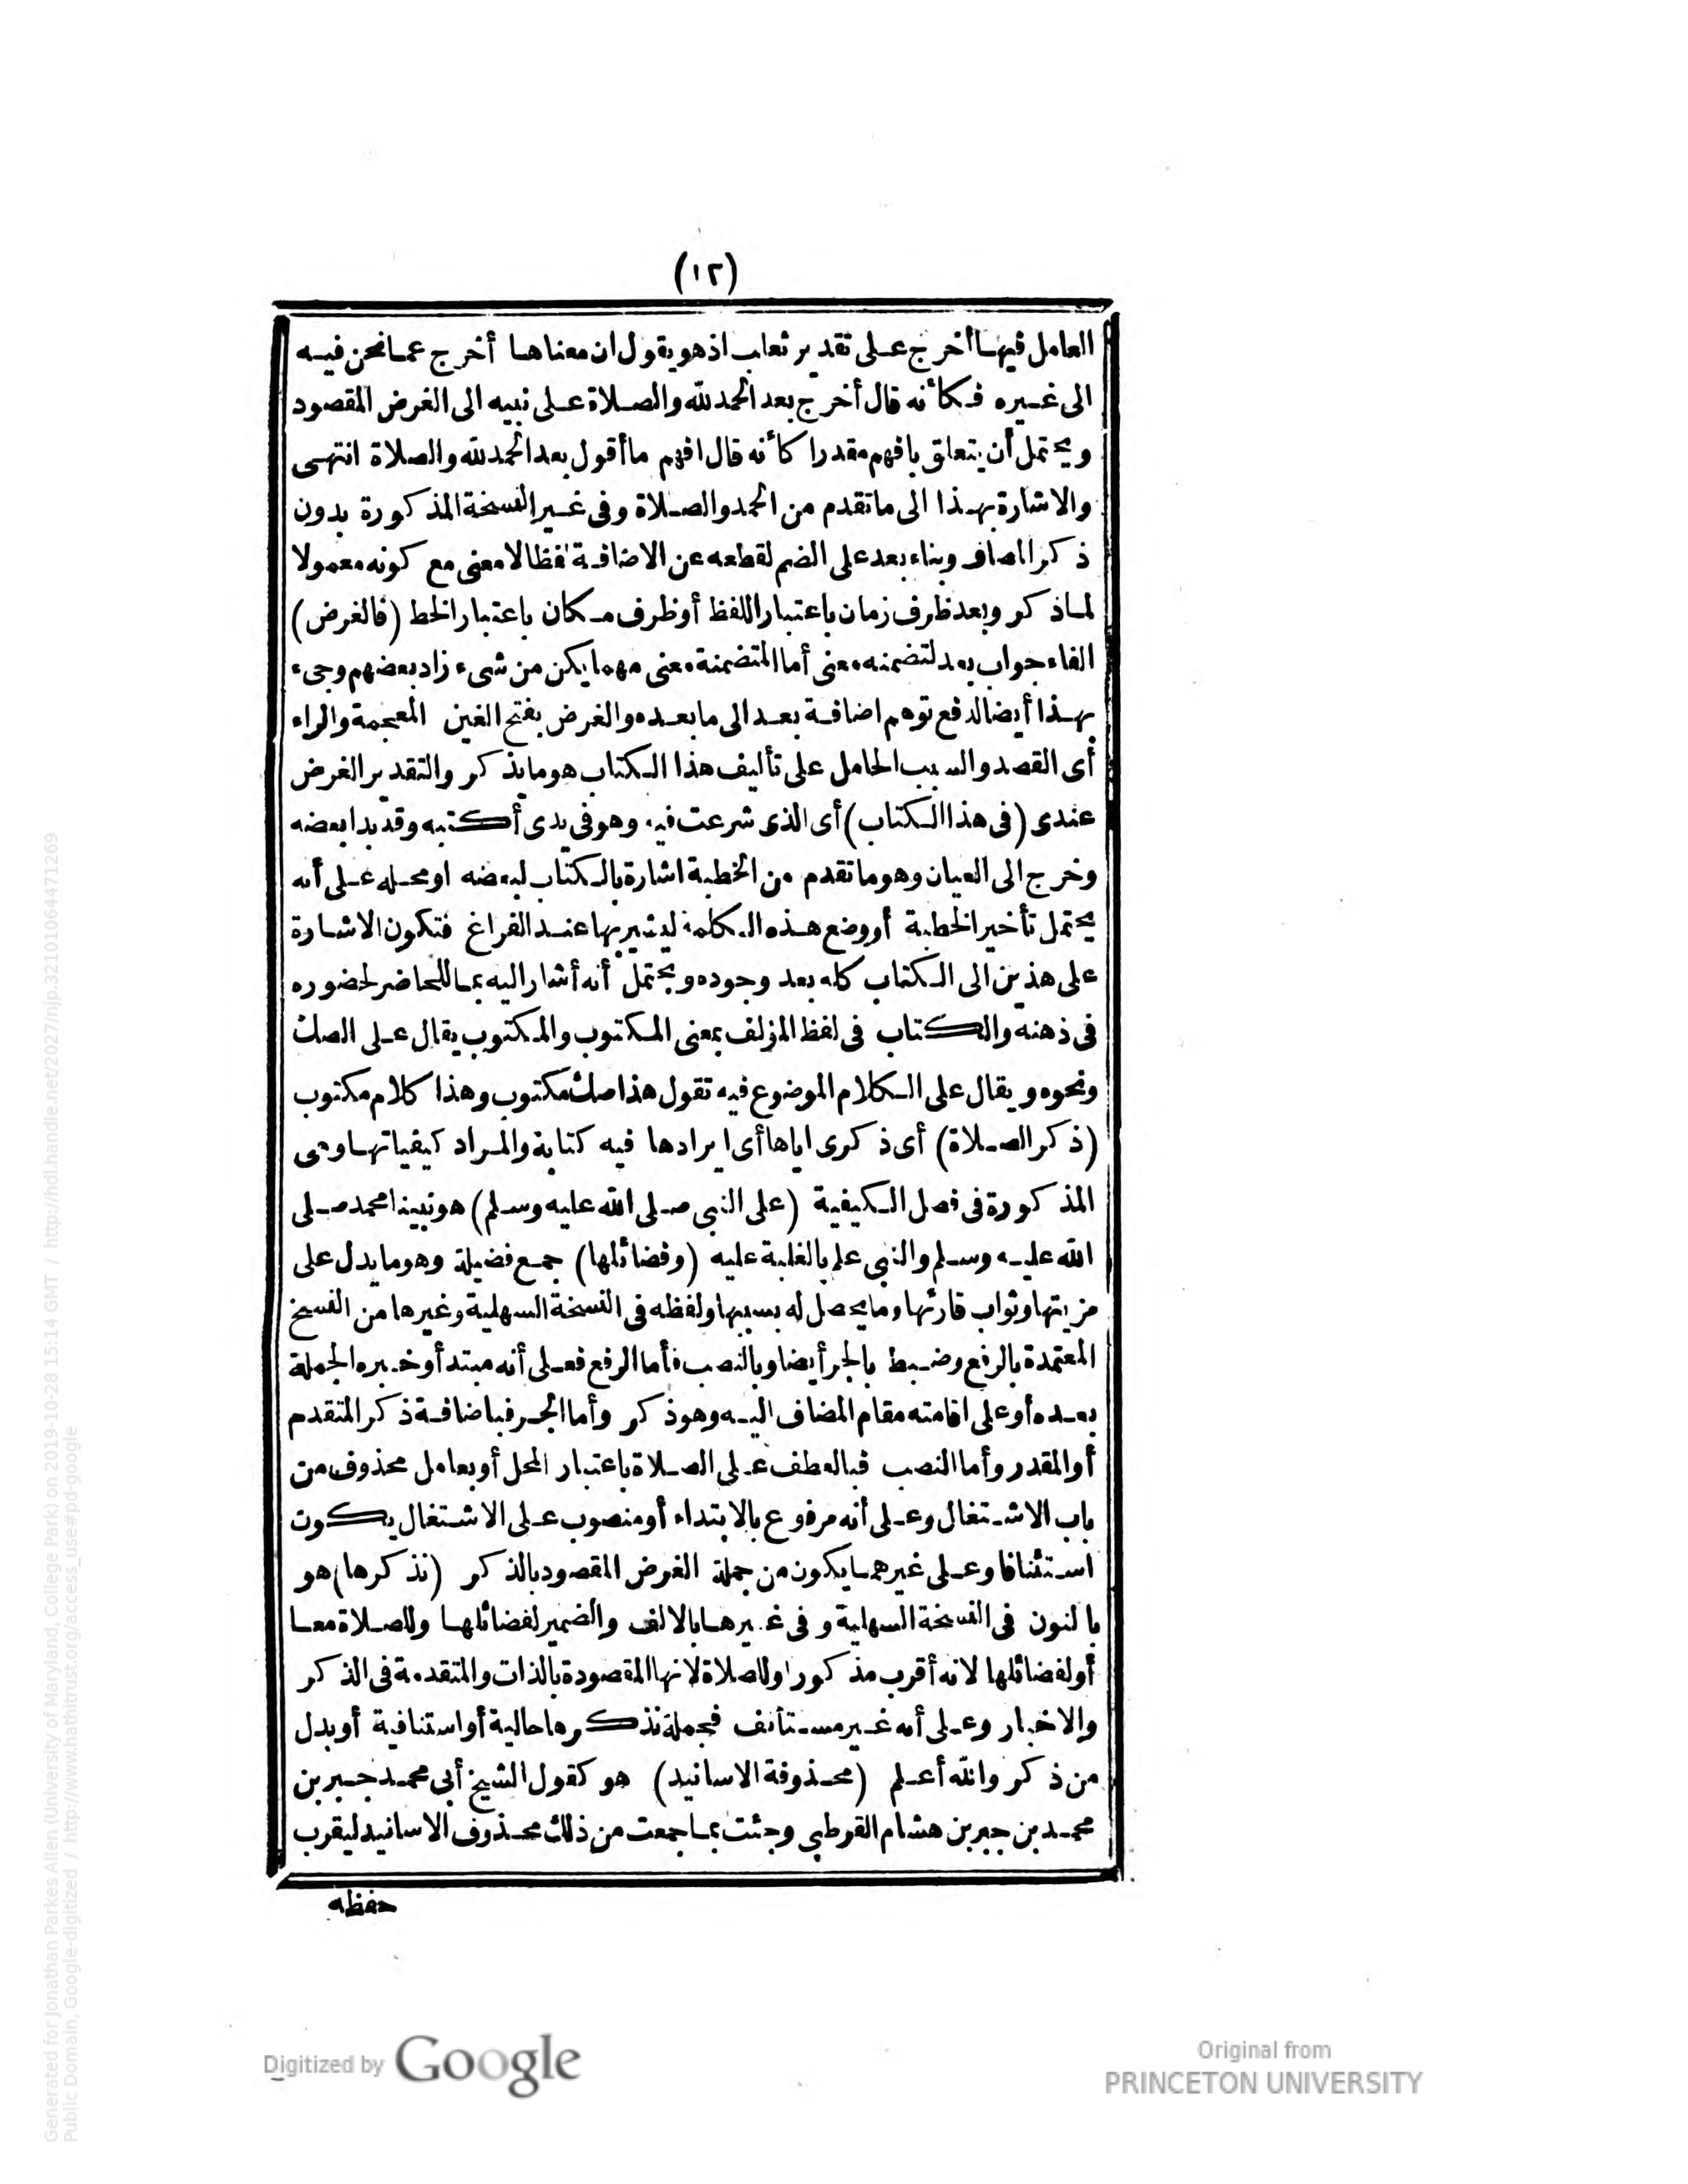 (١٢)
العامل فيها أخرج على تقدير ثعلب اذ هو يقول ان معناها أخرج عما نحن فيه
الى غيره فكأنه قال أخرج بعد الحمد لله والصلاة على نبيه الى الغرض المقصود
ويحتمل أن يتعلق بافهم مقدرا كأنه قال افهم ما أقول بعد الحمد لله والصلاة انتهى
والاشارة بهذا الى ما تقدم من الحمد والصلاة وفى غير النسخة المذكورة بدون
ذكر المضاف وبناء بعد على الضم لقطعه عن الاضافة لفظا لا معنى مع كونه معمولا
لما ذكر وبعد ظرف زمان باعتبار اللفظ أو ظرف مكان باعتبار الخط (فالغرض)
الفاء جواب بعد لتضمنه معنى أما المتضمنة معنى مهما يكن من شىء زاد بعضهم وجىء
بهذا أيضا لدفع توهم اضافة بعد الى ما بعده والغرض بفتح الغين المعجمة والراء
أى القصد والسبب الحامل على تأليف هذا الكتاب هو ما يذكر والتقدير الغرض
عندى (فى هذا الكتاب) أى الذى شرعت فيه وهو فى يدى أكتبه وقد بدا بعضه
وخرج الى العيان وهو ما تقدم من الخطبة اشارة بالكتاب لبعضه او محله على أنه
يحتمل تأخير الخطبة أو وضع هذه الكلمة ليشير بها عند الفراغ فتكون الاشارة
على هذين الى الكتاب كله بعد وجوده ويحتمل أنه أشار اليه بما للحاضر لحضوره
فى ذهنه والكتاب فى لفظ المؤلف بمعنى المكتوب والمكتوب يقال على الصك
ونحوه ويقال على الكلام الموضوع فيه تقول هذا صك مكتوب وهذا كلام مكتوب
(ذكر الصلاة) أى ذكرى اياها أى ايرادها فيه كتابة والمراد كيفياتها وهى
المذكورة فى فصل الكيفية (على النبى صلى الله عليه وسلم) هو نبينا محمد صلى
الله عليه وسلم والنبى علم بالغلبة عليه (وفضائلها) جمع فضيلة وهو ما يدل على
مزيتها وثواب قارئها وما يحصل له بسببها ولفظه فى النسخة السهلية وغيرها من النسخ
المعتمدة بالرفع وضبط بالجر أيضا وبالنصب فأما الرفع فعلى أنه مبتدأ وخبره الجملة
بعده أو على اقامته مقام المضاف اليه وهو ذكر وأما الجر فباضافة ذكر المتقدم
أو المقدر وأما النصب فبالعطف على الصلاة باعتبار المحل أو بعامل محذوف من
باب الاشتغال وعلى أنه مرفوع بالابتداء أو منصوب على الاشتغال يكون
استئنافا وعلى غيرهما يكون من جملة الغرض المقصود بالذكر (نذكرها) هو
بالنون فى النسخة السهلية وفى غيرها بالالف والضمير لفضائلها وللصلاة معا
أو لفضائلها لانه أقرب مذكور أو للصلاة لانها المقصودة بالذات والمتقدمة فى الذكر
والاخبار وعلى أنه غير مستأنف فجملة نذكرها حالية أو استئنافية أو بدل
من ذكر والله أعلم (محذوفة الاسانيد) هو كقول الشيخ أبى محمد جبر بن
محمد بن جبر بن هشام القرطبى وجئت بما جمعت من ذلك محذوف الاسانيد ليقرب
حفظه
Digitized by Google
Original from
PRINCETON UNIVERSITY
Generated for Jonathan Parkes Allen (University of Maryland, College Park) on 2019-10-28 15:14 GMT / http://hdl.handle.net/2027/njp.32101064471269
Public Domain, Google-digitized / http://www.hathitrust.org/access_use#pd-google